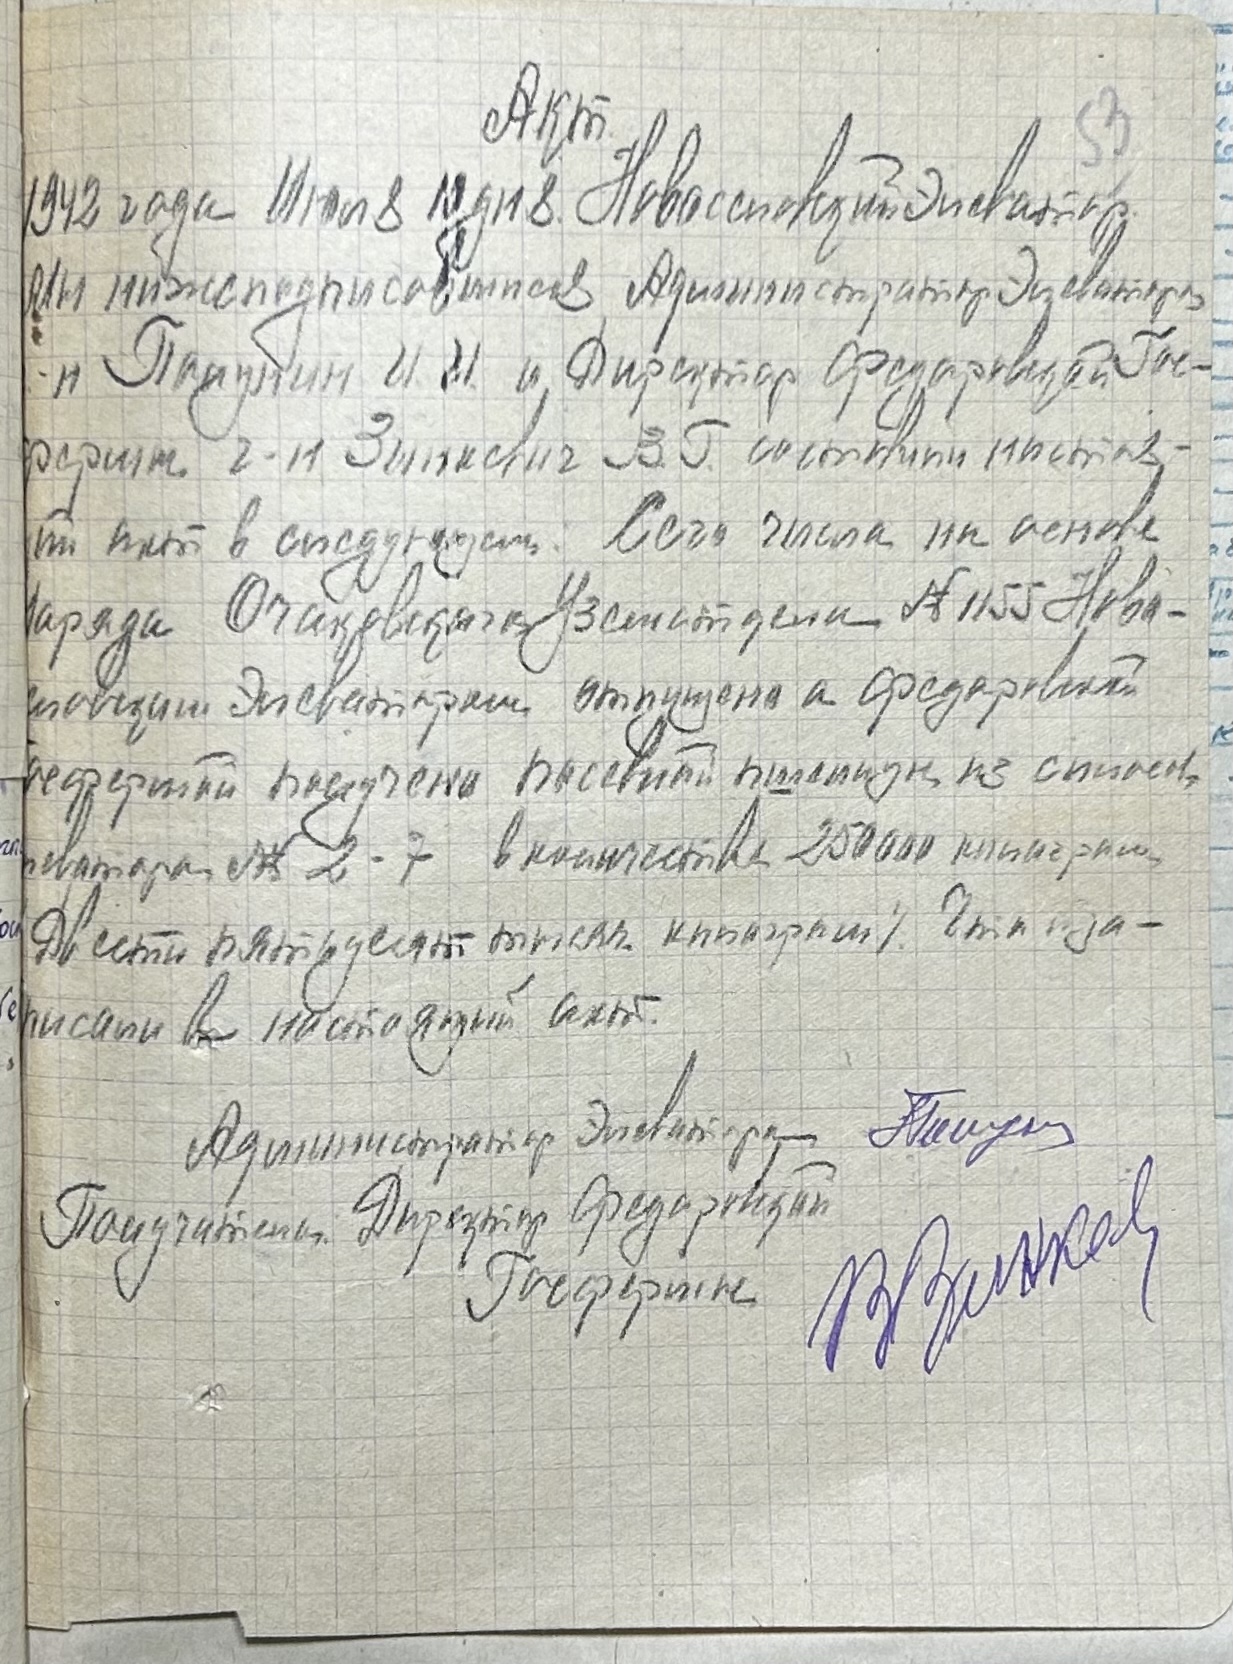 53
Акт
1942 года Июля дня. Новоселовский Элеватор.
Мы нижеподписавшиеся Администратор Элеватора
г-н Полунин И.И. и Директор Федоровской Гос-
фермы г-н Зинкевич В.Г. составили настоя-
акт в следующем. Сего числа на основе
Наряда Очаковского Уземотдела № 1155 Ново-
Элеватором отпущено а Федоровской
Госфермой получено посевной пшеницы из
№ 2-7 в количестве 250000 килограмм
Двести пятьдесят тысяч килограмм/. Что и за-
писали в настоящий акт.
Администратор Элеватора
Получатель Директор Федоровской
Госфермы